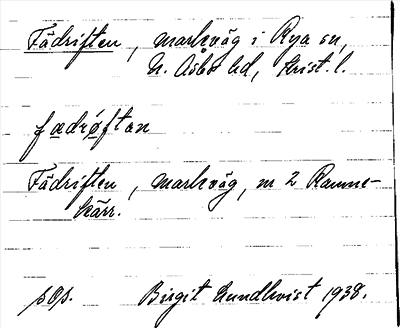 Fädriften, markväg i Rya sn,
N. Åsbo hd, Krist. l.
fædrøftan
Fädriften, markväg, m 2 Ramne-
kärr.
sOp. Birgit Lundkvist 1938.